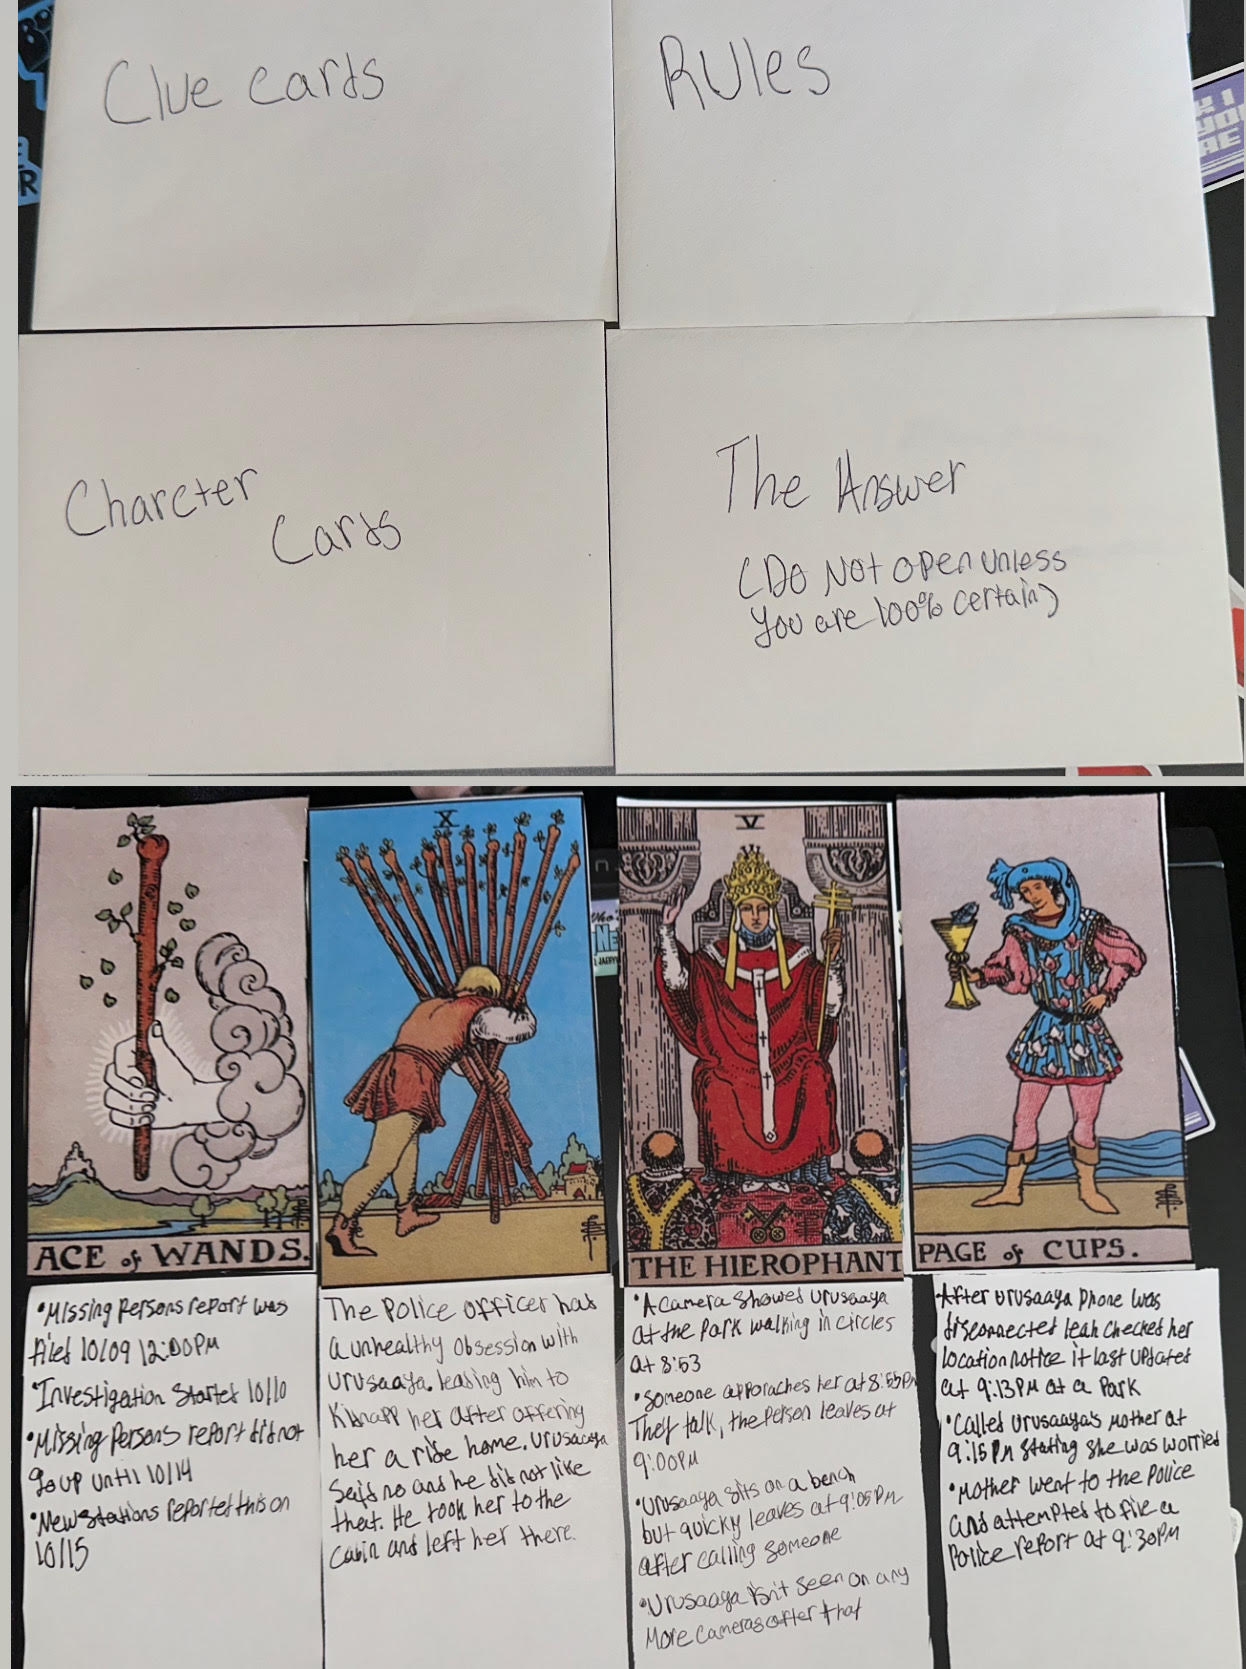 Clue cards
Rules
Charcter
Cards
The Answer
(Do Not open unless
you are 100% certain)
ACE of WANDS.
•Missing persons report was
filed 10/09 12:00PM
•Investigation started 10/10
•Missing Persons report did not
go up until 10/14
•New stations reported this on
10/15
X
The Police officer has
a unhealthy obsession with
Urusaaya. leading him to
Kidnapp her after offering
her a ride home. Urusaaya
Said no and he did not like
that. He took her to the
Cabin and left her there.
V
THE HIEROPHANT
•A camera showed Urusaaya
at the Park walking in circles
at 8:53
•Someone apporaches her at 8:55PM
They talk, the person leaves at
9:00PM
•Urusaaya sits on a bench
but quicky leaves at 9:05PM
after calling someone
•Urusaaya isn't seen on any
More cameras after that
PAGE of CUPS.
After Urusaaya phone was
disconnected leah checked her
location notice it last updated
at 9:13PM at a Park
•Called Urusaaya's mother at
9:15PM stating she was worried
•Mother went to the Police
and attempted to file a
Police report at 9:30PM